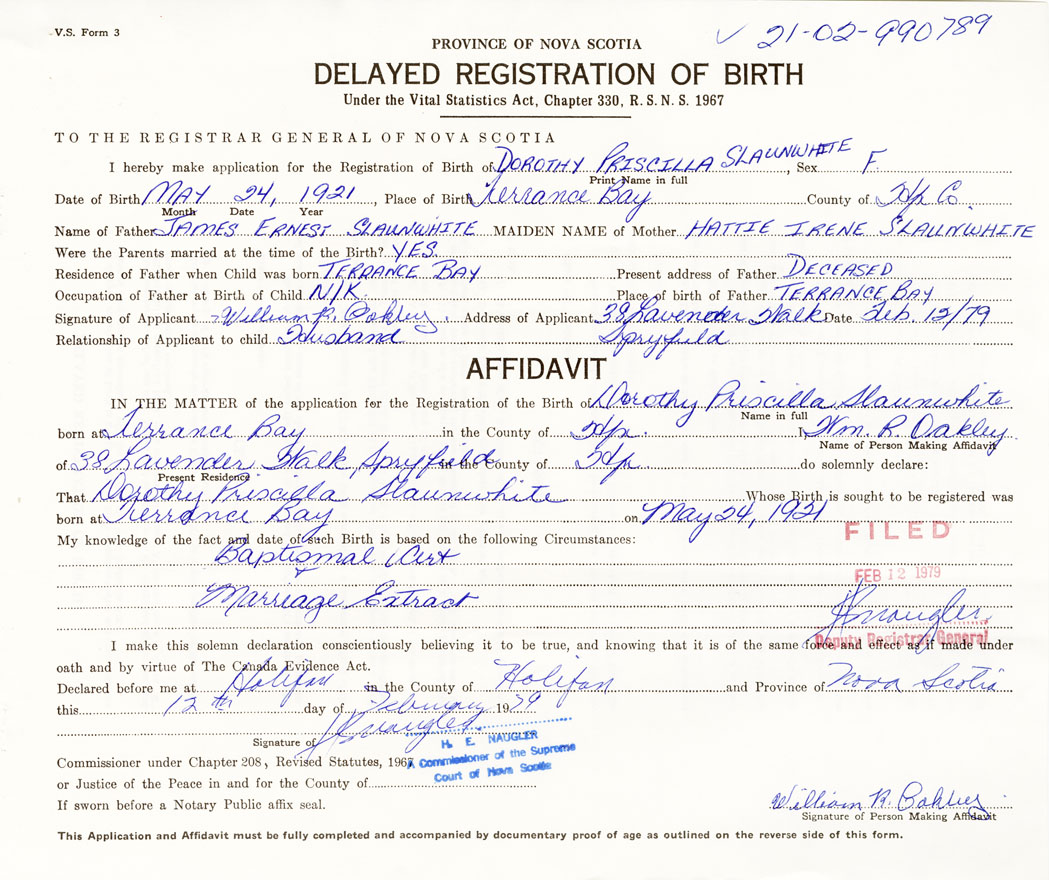 V.S. Form 3
✓ 21-02-990789
PROVINCE OF NOVA SCOTIA
DELAYED REGISTRATION OF BIRTH
Under the Vital Statistics Act, Chapter 330, R. S. N. S. 1967
TO THE REGISTRAR GENERAL OF NOVA SCOTIA
I hereby make application for the Registration of Birth of DOROTHY PRISCILLA SLAUNWHITE, Sex F.
Print Name in full
Date of Birth MAY 24, 1921, Place of Birth Terrance Bay County of Hfx Co.
Month Date Year
Name of Father JAMES ERNEST SLAUNWHITE MAIDEN NAME of Mother HATTIE IRENE SLAUNWHITE
Were the Parents married at the time of the Birth? YES.
Residence of Father when Child was born TERRANCE BAY Present address of Father DECEASED
Occupation of Father at Birth of Child N/K. Place of birth of Father TERRANCE BAY
Signature of Applicant William R. Oakley. Address of Applicant 38 Lavender Walk Date Feb. 12/79
Relationship of Applicant to child Husband Spryfield
AFFIDAVIT
IN THE MATTER of the application for the Registration of the Birth of Dorothy Priscilla Slaunwhite
Name in full
born at Terrance Bay in the County of Hfx. I Wm. R. Oakley
Name of Person Making Affidavit
of 38 Lavender Walk Spryfield in the County of Hfx. do solemnly declare:
Present Residence
That Dorothy Priscilla Slaunwhite Whose Birth is sought to be registered was
born at Terrance Bay on May 24, 1921
FILED
My knowledge of the fact and date of such Birth is based on the following Circumstances:
Baptismal Cert
+
FEB 12 1979
Marriage Extract
HENaugler
Deputy Registrar General
I make this solemn declaration conscientiously believing it to be true, and knowing that it is of the same force and effect as if made under
oath and by virtue of The Canada Evidence Act.
Declared before me at Halifax in the County of Halifax and Province of Nova Scotia
this 12th day of February 1979
HENaugler
Signature of
H. E. NAUGLER
A Commissioner of the Supreme
Court of Nova Scotia
Commissioner under Chapter 208, Revised Statutes, 1967,
or Justice of the Peace in and for the County of
If sworn before a Notary Public affix seal.
William R. Oakley
Signature of Person Making Affidavit
This Application and Affidavit must be fully completed and accompanied by documentary proof of age as outlined on the reverse side of this form.